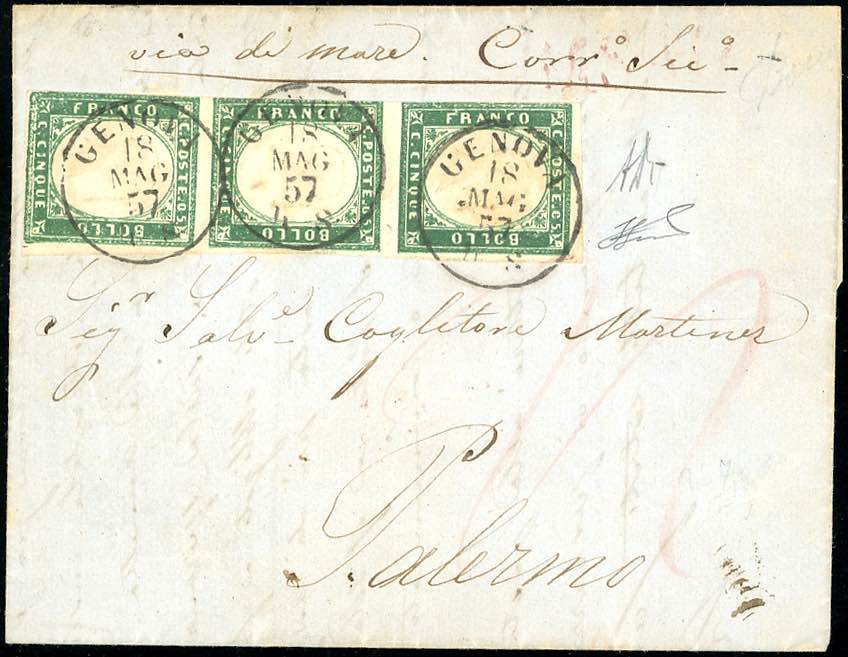 via di mare. Corr.o Sic.o
FRANCO C. CINQUE BOLLO C. POSTE. C. 5
FRANCO C. CINQUE BOLLO POSTE. C. 5
FRANCO C. CINQUE BOLLO C. POSTE. C. 5
GENOVA 18 MAG 57
GENOVA 18 MAG 57
GENOVA 18 MAG 57
Sig.r Salv.e Coglitore Martines
Palermo